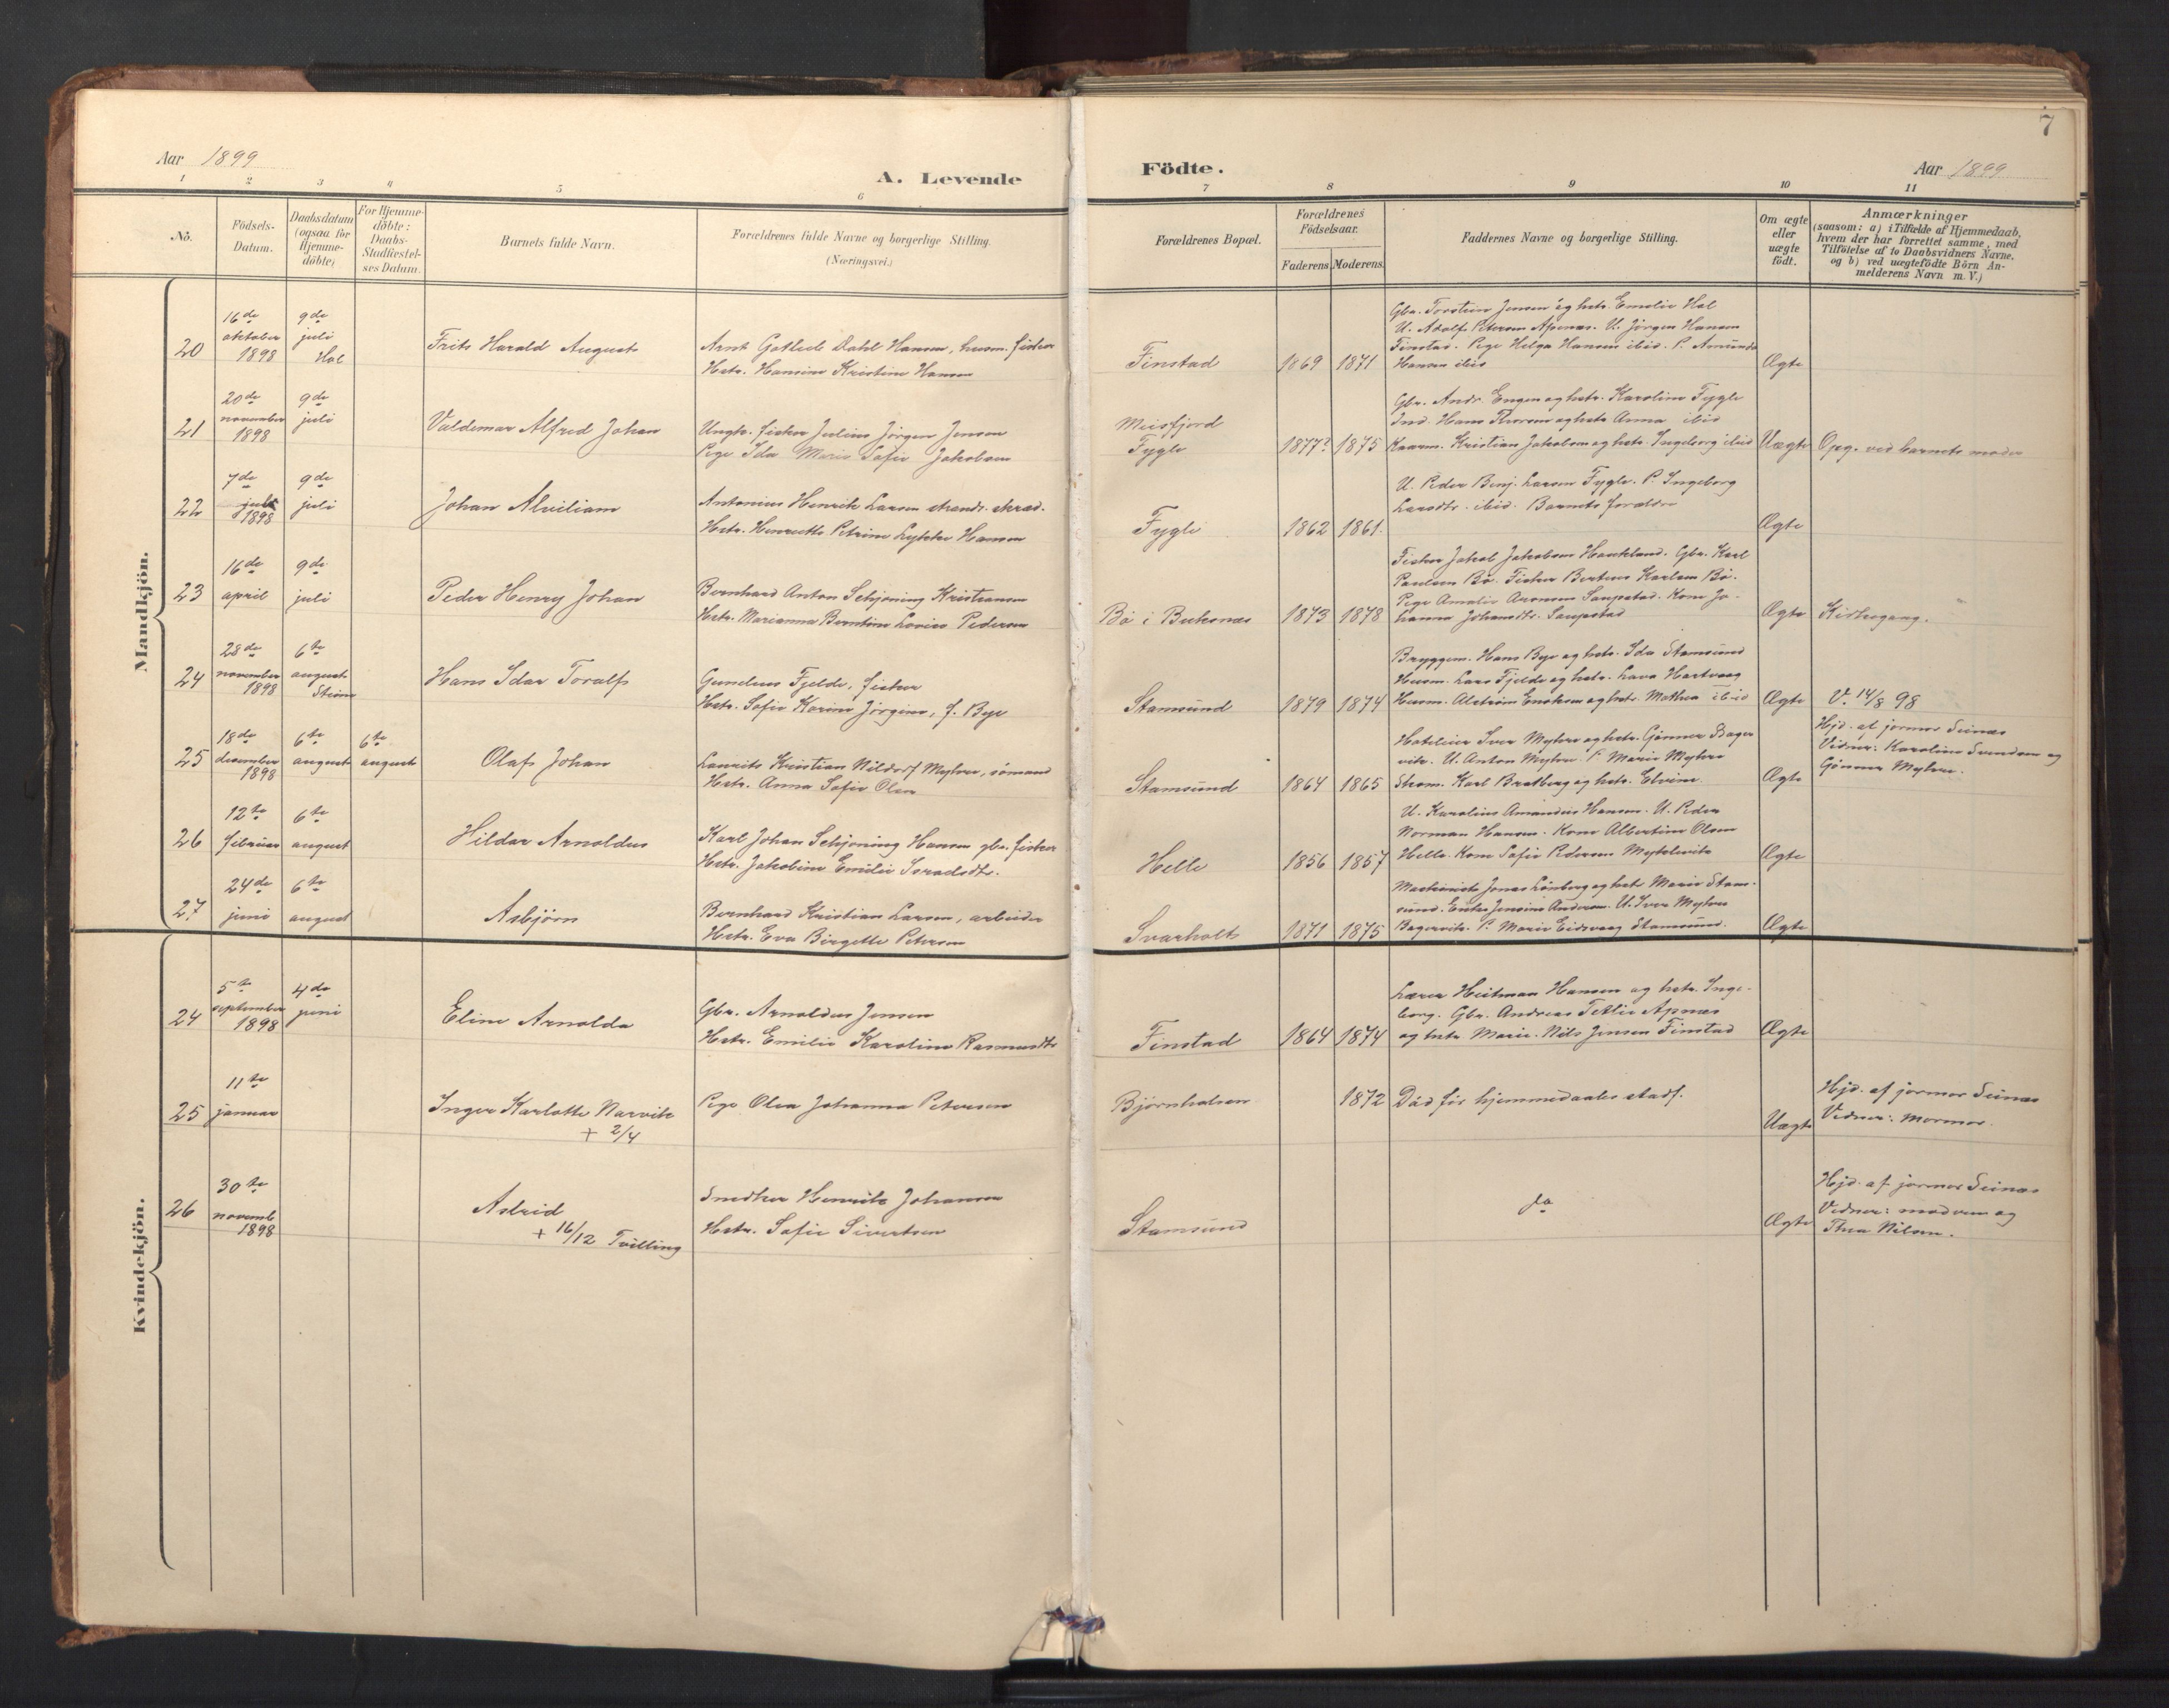 7
Aar 1899
A. Levende
Födte.
Aar 1899
1 2 3 4 5 6 7 8 9 10 11
No.
Födsels-
Datum.
Daabsdatum
(ogsaa for
Hjemme-
döbte)
For Hjemme-
döbte:
Daabs-
Stadfæstel-
ses Datum.
Barnets fulde Navn.
Forældrenes fulde Navne og borgerlige Stilling.
(Næringsvei.)
Forældrenes Bopæl.
Forældrenes
Födselsaar.
Faderens. Moderens.
Faddernes Navne og borgerlige Stilling.
Om ægte
eller
uægte
födt.
Anmærkninger
(saasom: a) i Tilfælde af Hjemmedaab,
hvem der har forrettet samme, med
Tilföielse af to Daabsvidners Navne,
og b) ved uægtefödte Börn An-
melderens Navn m. V.)
Mandkjön.
20
16de
oktober
1898
9de
juli
Hol
Frits Harald August
Arnt Gotlieb Dahl Hansen, husm. fisker
Hstr. Hansine Kristine Hansen
Finstad
1869 1871
Gbr. Torstein Jensen og hstr. Emelie Hol
U. Adolf Petersen Apenæs. U. Jörgen Hansen
Finstad. Pige Helga Hansen ibid. P. Amunda
Hansen ibid
Ægte
21
20de
november
1898
9de
juli
Valdemar Alfred Johan
Ungk. fisker Julius Jörgen Jensen
Pige Ida Marie Sofie Jakobsen
Meisfjord
Fygle
1877? 1875
Gbr. Andr. Engen og hstr. Karoline Fygle
Ind. Hans Thoresen og hstr Anna ibid
Kaarm. Kristian Jakobsen og hstr. Ingeborg ibid
Uægte
Opg. ved barnets moder
22
7de
juli
1898
9de
juli
Johan Alviliam
Antonius Henrik Larsen strands. skræd.
Hstr. Henrette Petrine Lykke Hansen
Fygle
1862 1861.
U. Peder Benj. Larsen Fygle. P. Ingeborg
Larsdtr. ibid. Barnets forældre
Ægte
23
16de
april
9de
juli
Peder Henry Johan
Bernhard Anton Schjöning Kristiansen
Hstr. Marianna Berntine Lovise Pedersen
Bö i Buksnæs
1873 1878
Fisker Jakob Jakobsen Haukland. Gbr. Karl
Paulsen Bö. Fisker Berteus Karlsen Bö.
Pige Amalie Aronsen Saupstad. Kone Jo-
hanna Johansdtr. Saupstad
Ægte
Kirkegang.
24
28de
november
1898
6te
august
Stene
Hans Idar Toralf
Gunelius Fjelde, fisker
Hstr. Sofie Karine Jörgine, f. Bye
Stamsund
1879 1874
Bryggem. Hans Bye og hstr. Ida Stamsund
Husm. Lars Fjelde og hstr. Lava Hartvaag
Husm. Alström Enoksen og hstr. Mathea ibid
Ægte
V. 14/8 98
25
18de
desember
1898
6te
august
6te
august
Olaf Johan
Laurits Kristian Nildorf Myhre, sömand
Hstr. Anna Sofie Olsen
Stamsund
1864 1865
Hotelleier Iver Myhre og hstr. Gönner Bager
vik. U. Anton Myhre. P. Marie Myhre
Skom. Karl Bratberg og hstr. Elvine.
Ægte
Hjd. af jormor Seines
Vidner: Karoline Svendsen og
Gönner Myhre.
26
12te
februar
6te
august
Hildar Arnoldus
Karl Johan Schjöning Hansen gbr. fisker
Hstr. Jakobine Emilie Isradsdtr.
Helle
1856 1857
U. Karolius Amandus Hansen. U. Peder
Norman Hansen. Kone Albertine Olsen
Helle. Kone Sofie Pedersen
Ægte
27
24de
juni
6te
august
Asbjörn
Bernhard Kristian Larsen, arbeider
Hstr. Eva Birgette Petersen
Svarholt
1871 1875
Maskinist Jonas Lönberg og hstr Marie Stam-
sund. Enke Jensine Andersen. U. Iver Myhre
Bagervik. P. Marie Eidsvaag Stamsund.
Ægte
Kvindekjön.
24
5te
september
1898
4de
juni
Eline Arnolda
Gbr. Arnoldus Jensen
Hstr. Emilie Karoline Rasmusdtr
Finstad
1864 1874
Lærer Heitman Hansen og hstr. Inge-
borg. Gbr. Andreas Tetlie Apnæs
og hstr Marie. Nils Jensen Finstad
Ægte
25
11te
januar
Inger Karlotte Narvik
+ 2/4
Pige Olea Johanna Petersen
Bjørnhalsen
1872
Död för hjemmedaabs stadf.
Uægte
Hjd. af jormor Seines
Vidner: Mormor.
26
30te
novemb
1898
Astrid
+ 16/12 Tvilling
Snedker Henrik Johansen
Hstr. Sofie Sivertsen
Stamsund
do
Ægte
Hjd. af jormor Seines
Vidner: moderen og
Thea Nilsen.